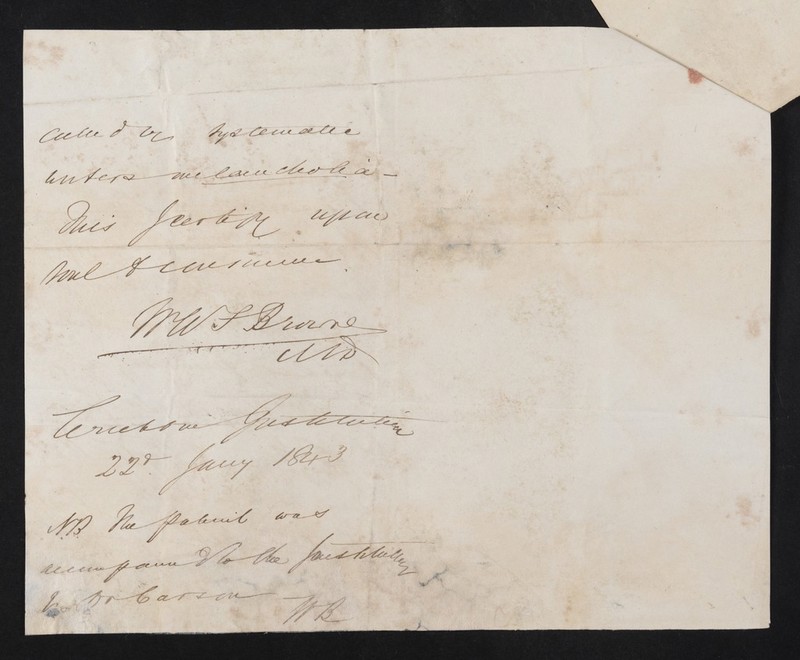 called by systematic
writers melancholia –
This I certify upon
Soul & conscience.
W.A.F Browne
MD
Crichton Institution
22d. Jany 1843
N.B. The patient was
accompanied to the Institution
by Dr Carson
WB